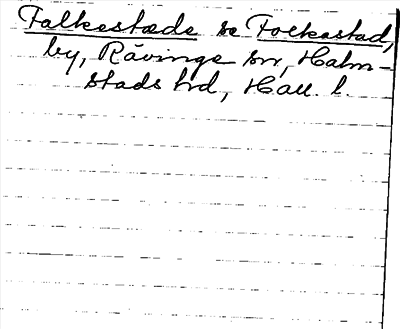 Falkestæde se Folkestad,
by, Rävinge sn, Halm-
stads hd, Hall. l.